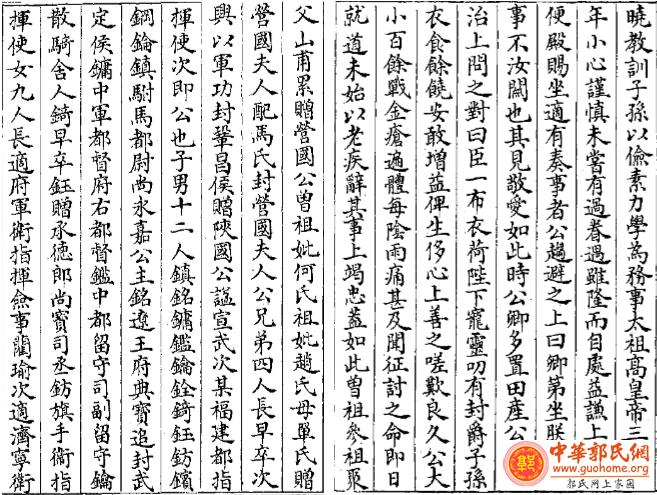 曉教訓子孫以儉素力學為務事太祖高皇帝三
年小心謹慎未嘗有過眷遇雖隆而自處益謙上
便殿賜坐適有奏事者公趨避之上曰卿第坐朕
事不汝關也其見敬愛如此時公卿多置田產公
治上問之對曰臣一布衣荷陛下寵靈叨有封爵子孫
衣食餘饒安敢增益俾生侈心上善之嗟歎良久公大
小百餘戰金瘡遍體每陰雨痛甚及聞征討之命即日
就道未始以老疾辭其事上竭忠藎如此曾祖參祖聚
父山甫累贈營國公曾祖妣何氏祖妣趙氏母單氏贈
營國夫人配馬氏封營國夫人公兄弟四人長早卒次
興以軍功封鞏昌侯贈陝國公謚宣武次某福建都指
揮使次即公也子男十二人鎮銘鏞鑑鑰銓錡鈺鈁鑌
鋼錀鎮駙馬都尉尚永嘉公主銘遼王府典寶追封武
定侯鏞中軍都督府右都督鑑中都留守司副留守鑰
散騎舍人錡早卒鈺贈承德郎尚寶司丞鈁旗手衛指
揮使女九人長適府軍衛指揮僉事藺瑜次適濟寧衛
中華郭氏網
www.guohome.org
郭氏网上家園